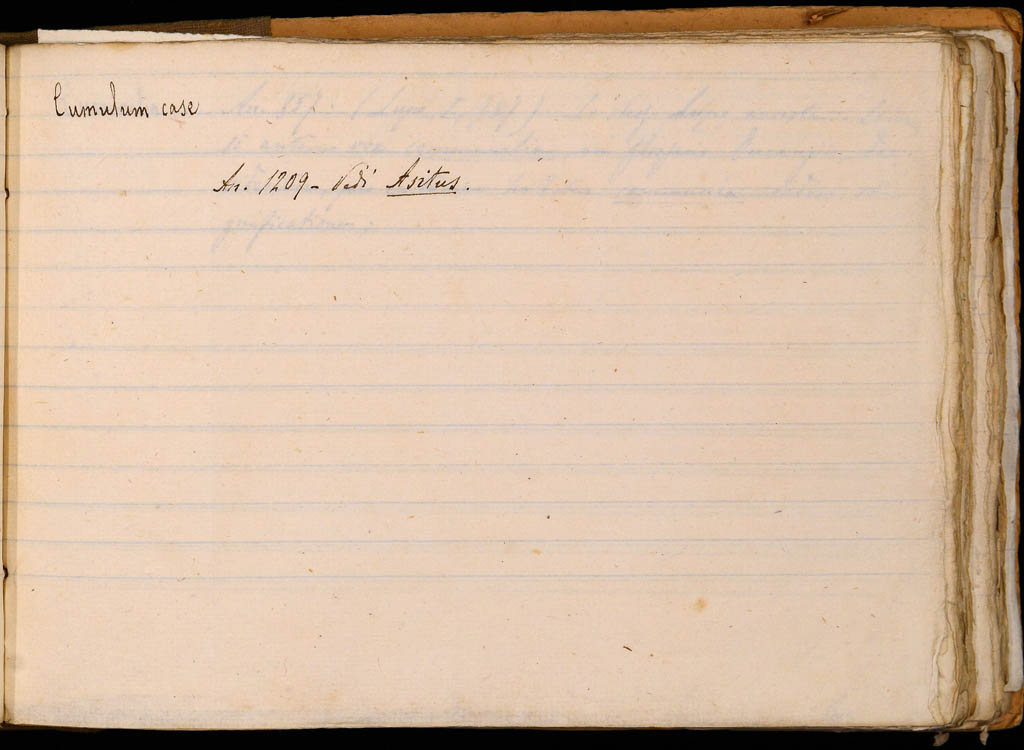 Cumulum case
An. 1209 - Vedi Asitus.